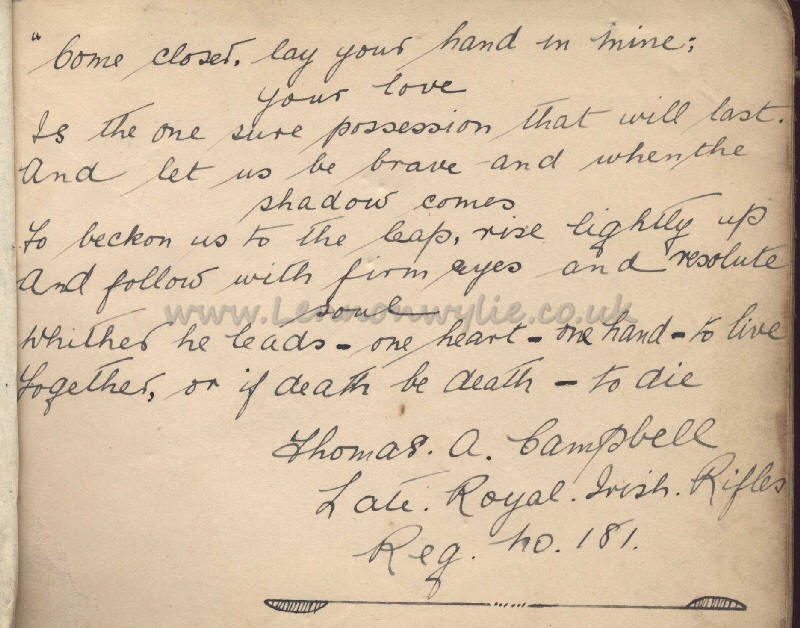 "Come closer, lay your hand in mine;
your love
Is the one sure possession that will last.
And let us be brave and when the
shadow comes
To beckon us to the leap, rise lightly up
And follow with firm eyes and resolute
soul
Whither he leads - one heart - one hand - to live
Together, or if death be death - to die
Thomas. A. Campbell
Late. Royal. Irish. Rifles
Reg. No. 181.
www.Lennonwylie.co.uk